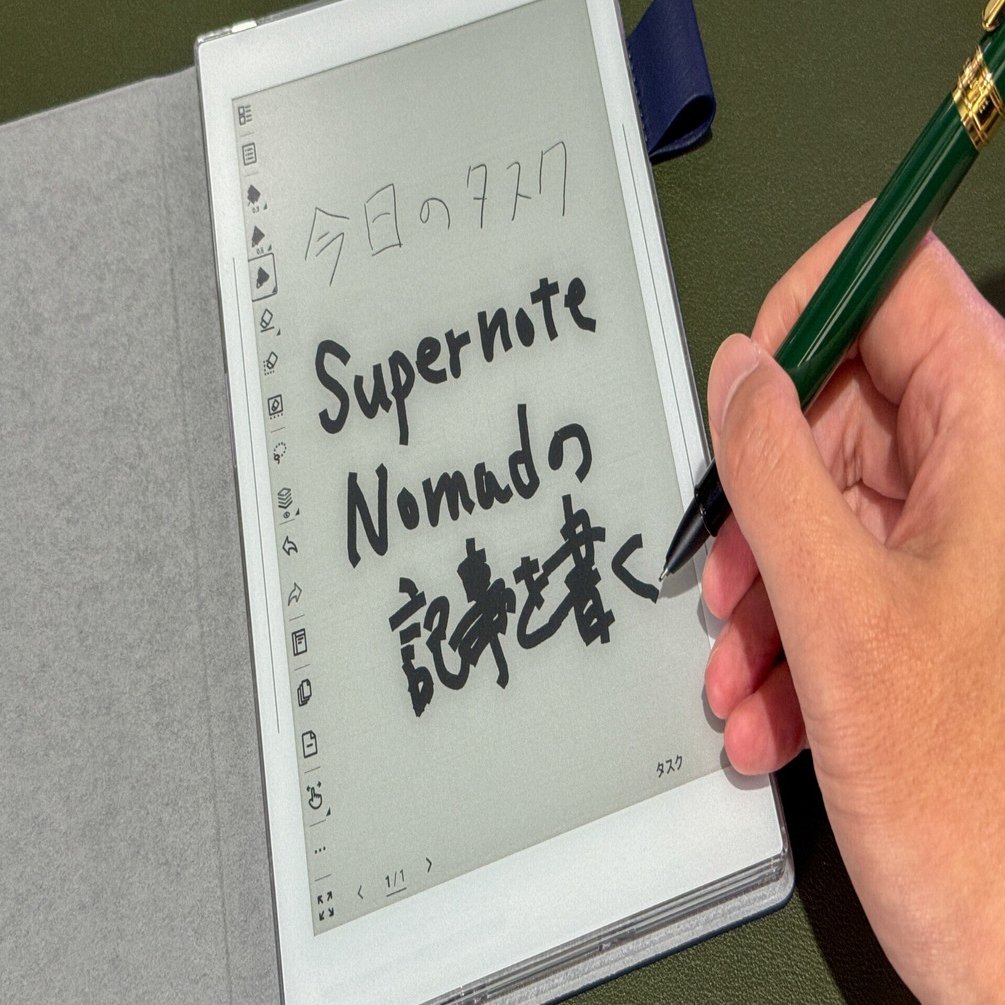 今日のタスク
Supernote
Nomadの
記事を書く
タスク
1/1